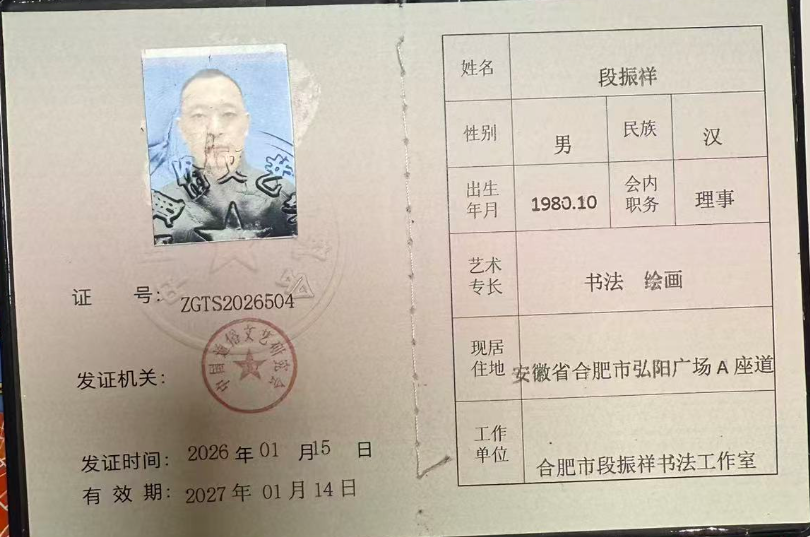 证 号: ZGTS2026504
中国通俗文艺研究会
发证机关:
发证时间: 2026 年 01 月 15 日
有 效 期: 2027 年 01 月 14 日
姓名 段振祥
性别 男 民族 汉
出生年月 1980.10 会内职务 理事
艺术专长 书法 绘画
现居住地 安徽省合肥市弘阳广场 A 座道
工作单位 合肥市段振祥书法工作室